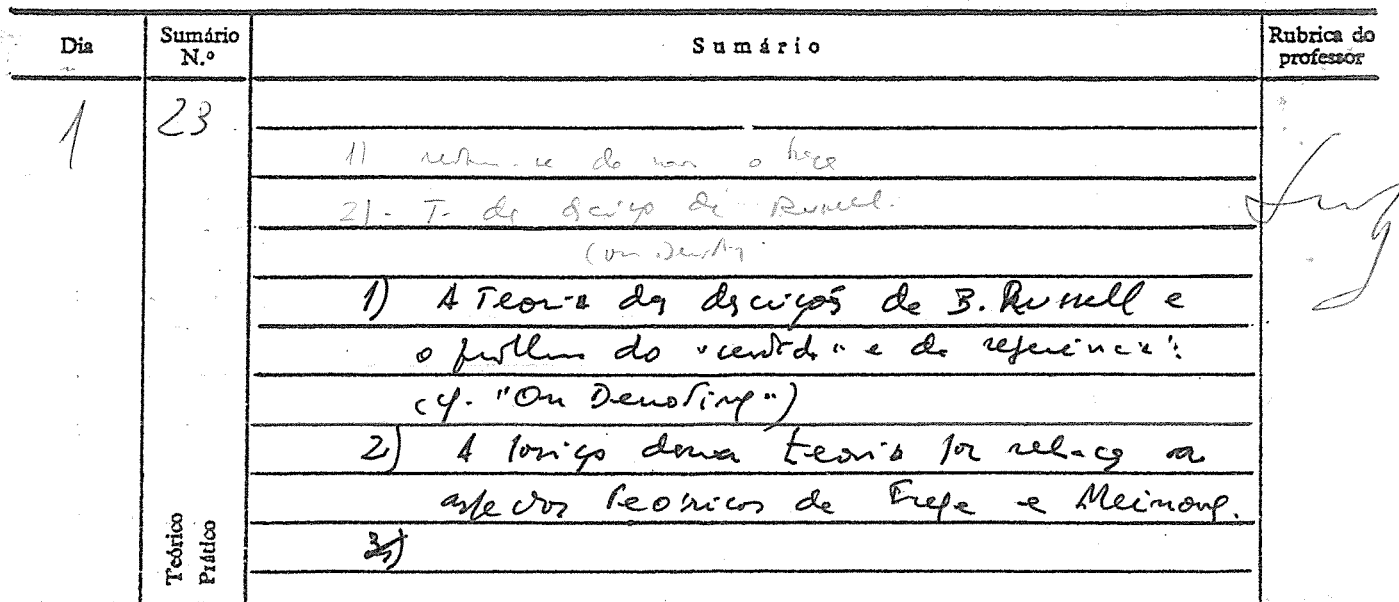 Dia Sumário N.º Sumário Rubrica do professor
1 23
1)
2) - T. de Russell.
1) A Teoria das descrições de B. Russell e
o problema do "sentido" e da referência":
(cf. "On Denoting")
2) A posição dessa teoria por relação a
aspectos teóricos de Frege e Meinong.
3)
Teórico
Prático